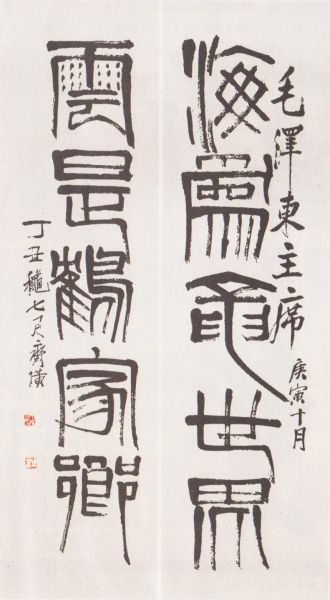 毛澤東主席 庚寅十月
海爲龍世界
雲是鶴家鄉
丁丑穐七尺齊璜